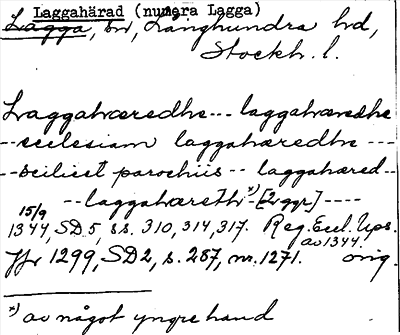 Laggahärad (numera Lagga)
Lagga, sn, Långhundra hd,
Stockh. l.
Laggahæredhe--- laggahæredhe
--ecclesiam laggahæredhe ---
--scilicet parochiis -- laggahæred--
--laggahærethi x) - [2 ggr] ----
15/9
1344, SD 5, ss. 310, 314, 317. Reg. Eccl. Ups.
av 1344.
Jfr 1299, SD 2, s. 287, nr. 1271. orig.
x) av något yngre hand